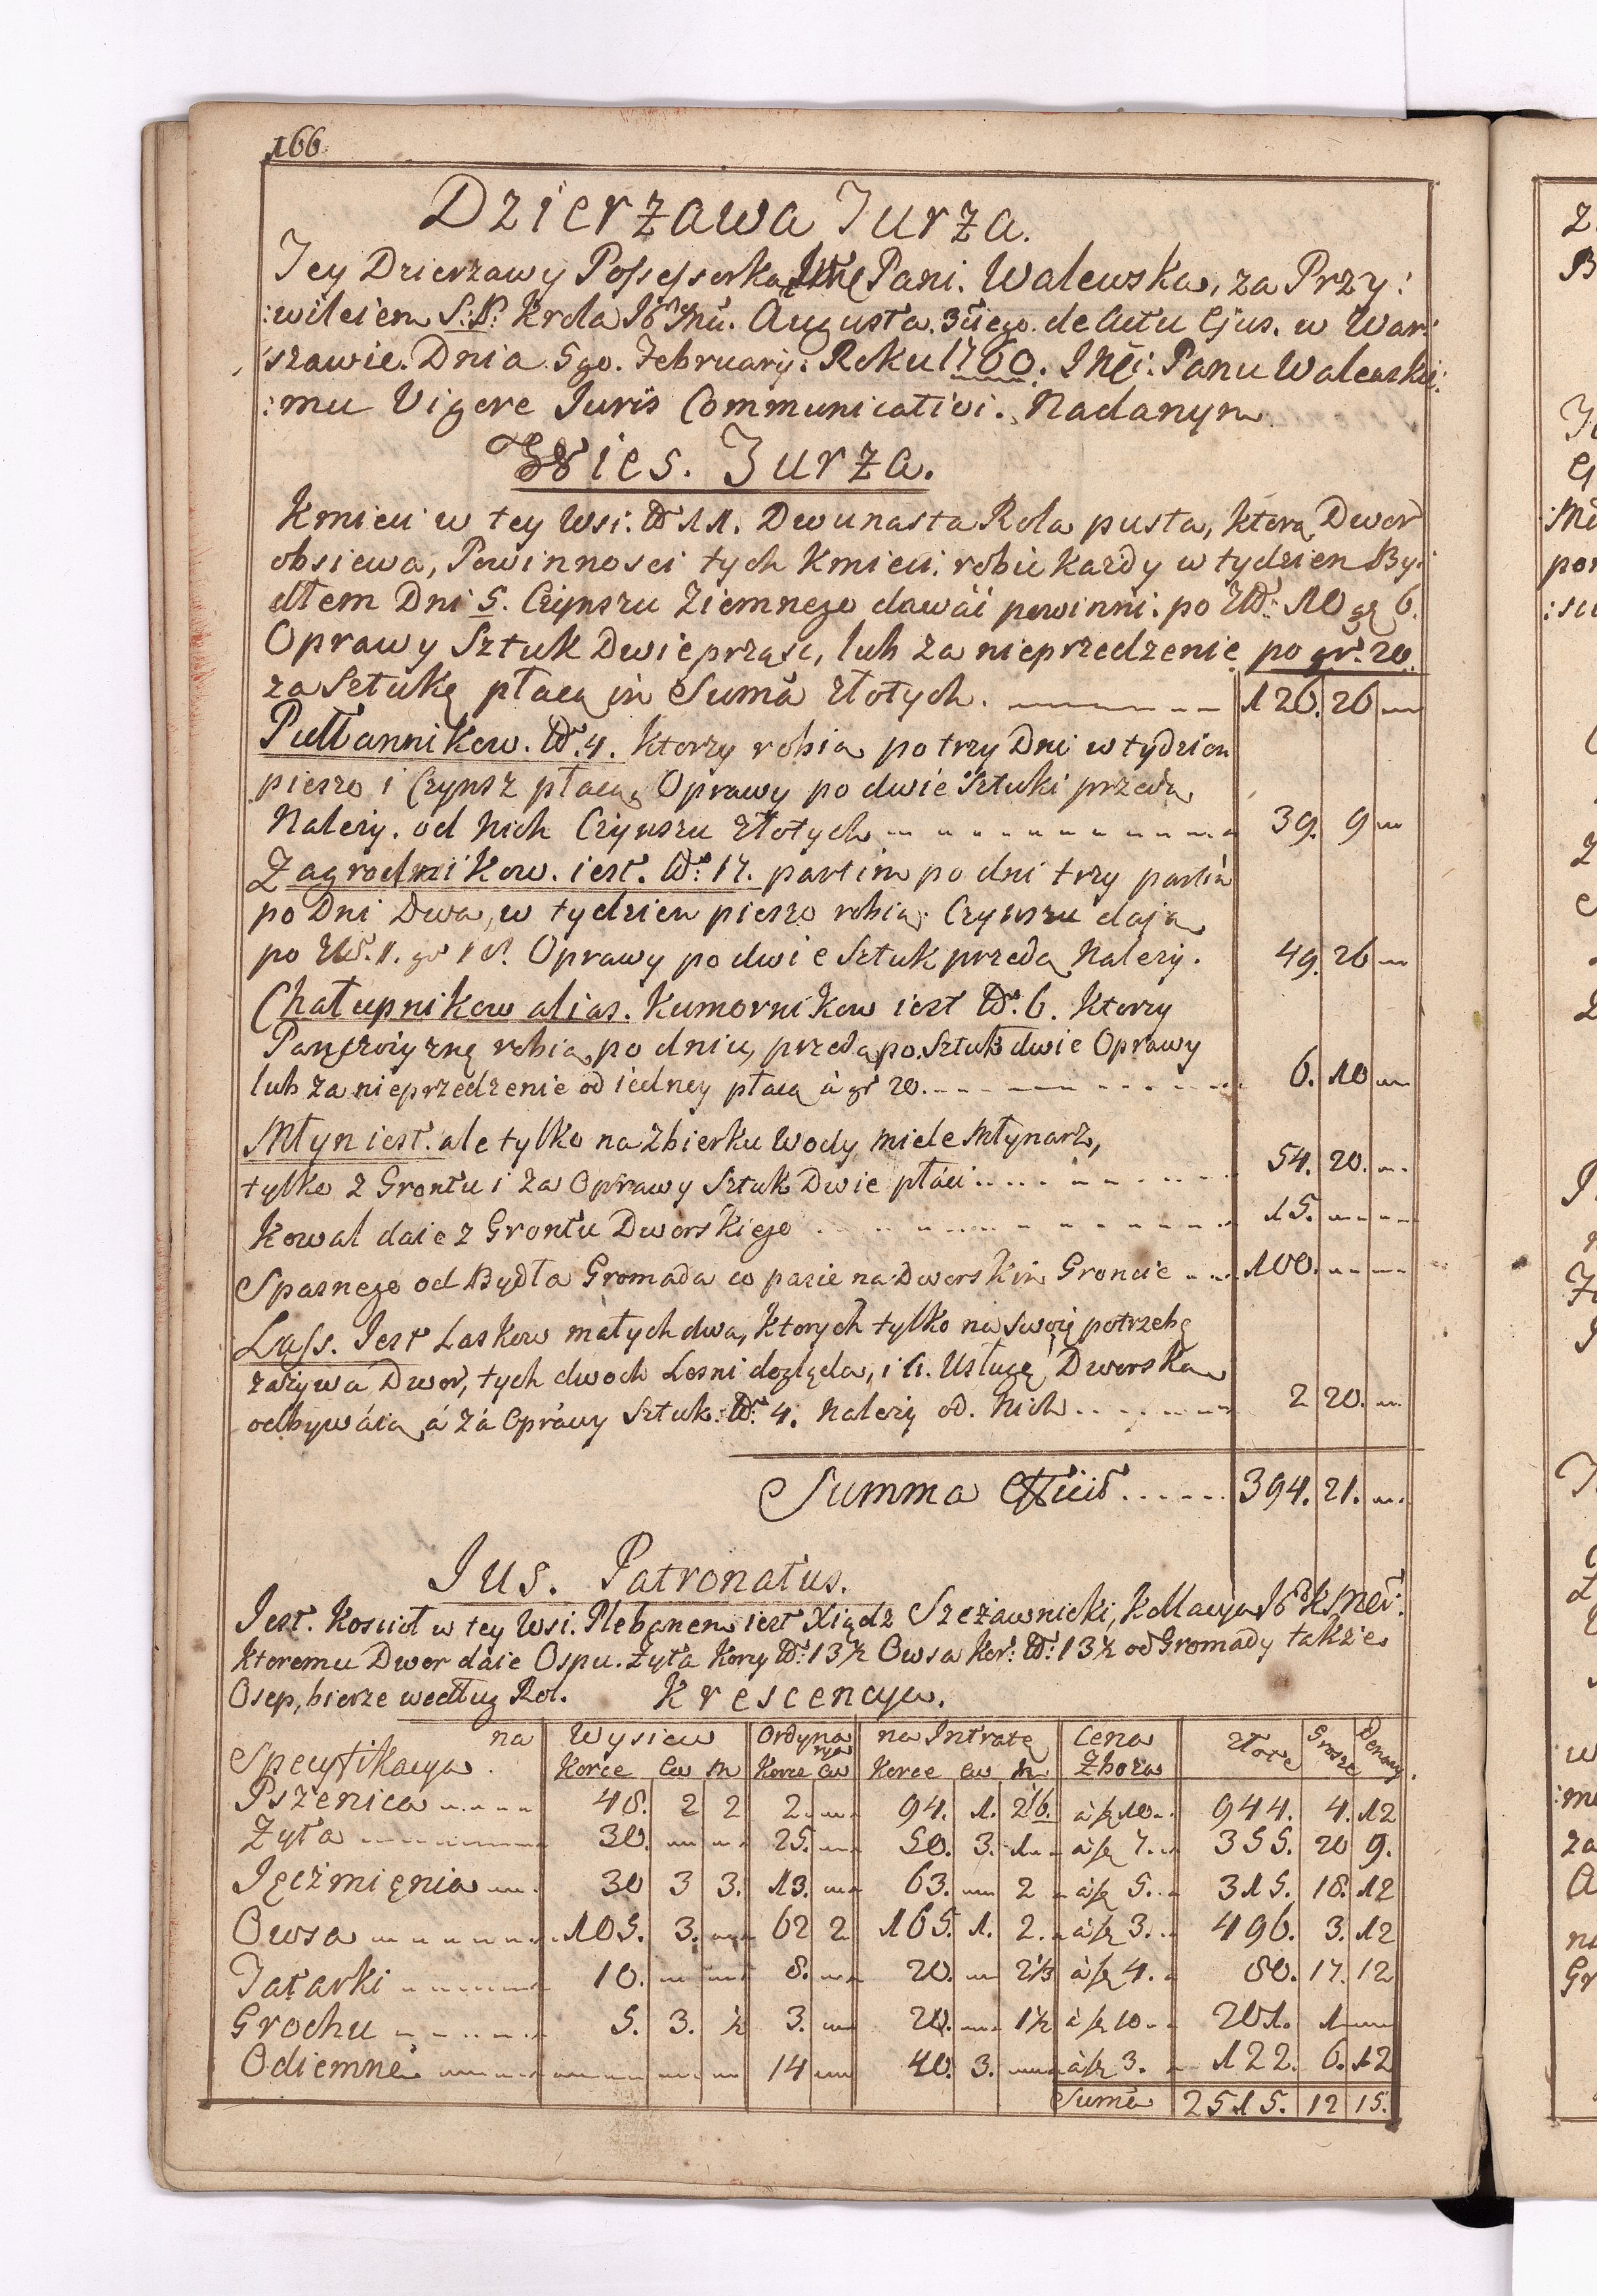 166.
Dzierzawa Jurza.
Jey Dzierzawy Possessorka Jmę Pani. Walewska, za Przy:
:wileiem S: P: Krola JK Mci. Augusta. 3ciego. de Actu Ejus. w War:
:szawie. Dnia 5go. February: Roku 1760. JMĉi: Panu Walewski:
:mu Vigore Juris Communicativi. Nadanym
Wies. Jurza.
Kmieci w tey Wsi. No 11. Dwunasta Rola pusta, ktorą Dwor
obsiewa, Powinnosci tych Kmieci: robic kazdy w tydzien By:
dłem Dni 5. Czynszu Ziemnego dawái powinni: po Zło: 10 gr 6.
Oprawy Sztuk Dwie prząsc, lub za nieprzedzenie po gr. 20.
za Sztukę płacą in Sumâ złotych. 126. 26
Pułłannikow. No. 4. ktorzy robią po trzy Dni w tydzien
pieszo i Czynsz płacą, Oprawy po dwie Sztuki przedą
Nalezy. od Nich Czynszu złotych 39. 9
Zagrodnikow. iest. No: 17. partim po dni trzy partim
po Dni Dwa, w tydzien pieszo robią. Czynszu dają
po Zło. 1. gr 18. Oprawy po dwie Sztuk przedą Nalezy. 49. 26
Chałupnikow alias. Kumornikow iest No: 6. ktorzy
Panszczyznę robią, po dniu, przedą po. Sztuk dwie Oprawy
lub za nieprzedzenie od iedney płacą à gr 20. 6. 10
Młyn iest. ale tylko na zbierku Wody, miele Młynarz,
tylko z Grontu i za Oprawy Sztuk Dwie płáci 54. 20.
Kowal daie z Grontu Dworskiego 15.
Spasnego od Bydła Gromada co pasie na Dworskim Groncie 100.
Lass. Jest Laskow małych dwa, ktorych tylko na swoię potrzebę
zażywa Dwor, tych dwoch Lesni dogląda, i A. Usługę Dworską
odbywáią, á zá Opráwy Sztuk: No: 4. Nalezy od. Nich 2 20.
Summa 394. 21.
Jus. Patronatus.
Jest. Kosciół w tey Wsi. Plebanem iest Xiądz Szczawnicki, Kollacya JK Mci.
ktoremu Dwor daie Ospu. Zyta Korcy No: 13 ½ Owsa Kor: No: 13 ½ od Gromady takze
Osep, bierze według Rol. Krescencya.
Specyfikacya. na Wysiew Ordyna rya na Intratę Cena Złote Grosze Denary.
Korce Cw M Korce Cw Korce Cw M. Zboza
Pszenica 48. 2 2 2. 94. 1. 2 1/6. à fl 10 944. 4. 12
Zyta 30. 25. 50. 3. 1 à fl 7. 355. 20 9.
Jęczmięnia 30 3 3. 13. 63. 2 à fl 5. 315. 18. 12
Owsa 105. 3. 62 2 165. 1. 2. à fl 3. 496. 3. 12
Tatarki 10. 8. 20. 2 1/3 à fl 4. 80. 17. 12
Grochu 5. 3. ½ 3. 20. 1½ à fl 10 201. 1
Odiemne 14 40. 3. à fl 3. 122. 6. 12
Suma 2515. 12 15.